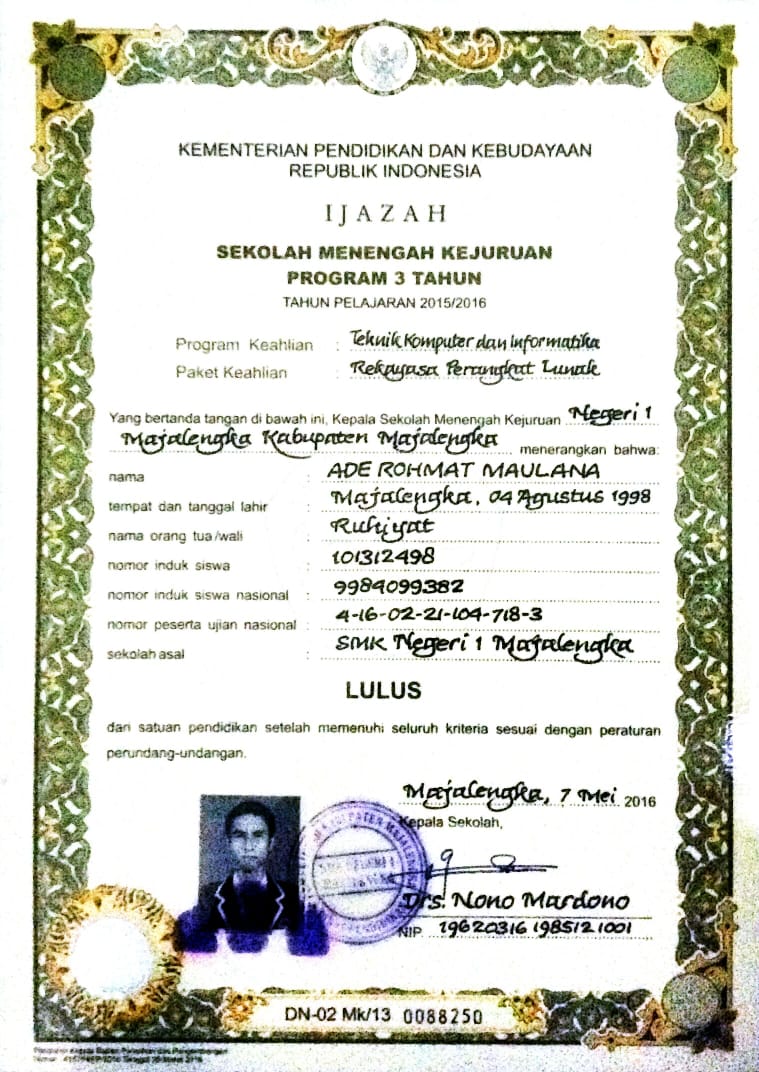 KEMENTERIAN PENDIDIKAN DAN KEBUDAYAAN
REPUBLIK INDONESIA
IJAZAH
SEKOLAH MENENGAH KEJURUAN
PROGRAM 3 TAHUN
TAHUN PELAJARAN 2015/2016
Program Keahlian : Teknik Komputer dan Informatika
Paket Keahlian : Rekayasa Perangkat Lunak
Yang bertanda tangan di bawah ini, Kepala Sekolah Menengah Kejuruan Negeri 1
Majalengka Kabupaten Majalengka menerangkan bahwa:
nama : ADE ROHMAT MAULANA
tempat dan tanggal lahir : Majalengka, 04 Agustus 1998
nama orang tua/wali : Ruhiyat
nomor induk siswa : 101312498
nomor induk siswa nasional : 9984099382
nomor peserta ujian nasional : 4-16-02-21-104-718-3
sekolah asal : SMK Negeri 1 Majalengka
LULUS
dari satuan pendidikan setelah memenuhi seluruh kriteria sesuai dengan peraturan
perundang-undangan.
Majalengka, 7 Mei 2016
Kepala Sekolah,
Drs. Nono Mardono
NIP 19620316 198512 1001
DN-02 Mk/13 0088250